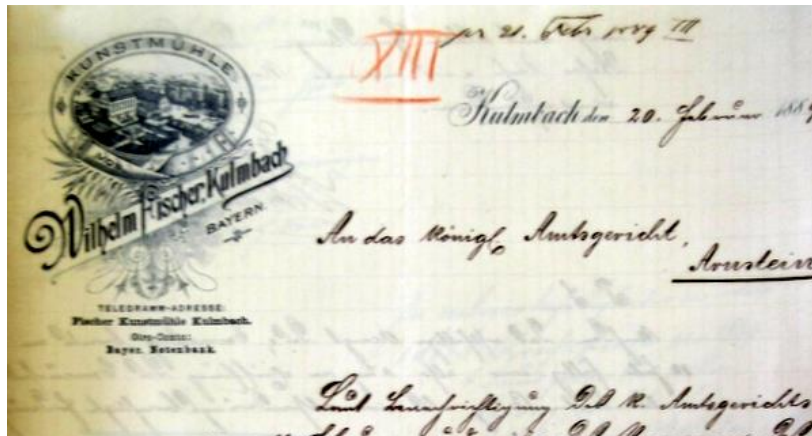 KUNSTMÜHLE
VON
Wilhelm Fischer, Kulmbach
BAYERN.
TELEGRAMM-ADRESSE:
Fischer Kunstmühle Kulmbach.
Giro-Conto:
Bayer. Notenbank.
XIII
Kulmbach den 20. Februar 188
An das Königl. Amtsgericht,
Arnstein
Laut Benachrichtigung des k. Amtsgerichts